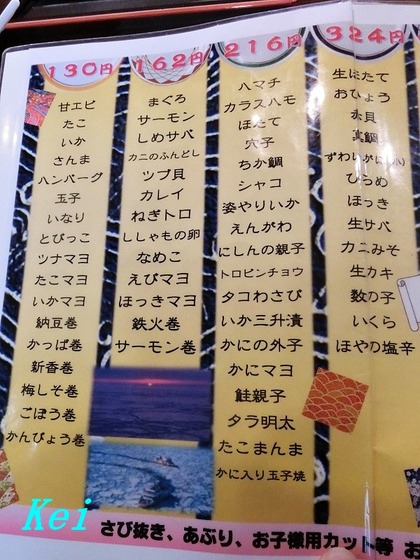 130円
甘エビ
たこ
いか
さんま
ハンバーグ
玉子
いなり
とびっこ
ツナマヨ
たこマヨ
いかマヨ
納豆巻
かっぱ巻
新香巻
梅しそ巻
ごぼう巻
かんぴょう巻
162円
まぐろ
サーモン
しめサバ
カニのふんどし
ツブ貝
カレイ
ねぎトロ
ししゃもの卵
なめこ
えびマヨ
ほっきマヨ
鉄火巻
サーモン巻
216円
ハマチ
カラスハモ
ほたて
穴子
ちか鯛
シャコ
姿やりいか
えんがわ
にしんの親子
トロビンチョウ
タコわさび
いか三升漬
かにの外子
かにマヨ
鮭親子
タラ明太
たこまんま
かに入り玉子焼
324円
生ほたて
おひょう
赤貝
真鯛
ずわいがに(小)
ひらめ
ほっき
生サバ
カニみそ
生カキ
数の子
いくら
ほやの塩辛
さび抜き、あぶり、お子様用カット等 お
Kei